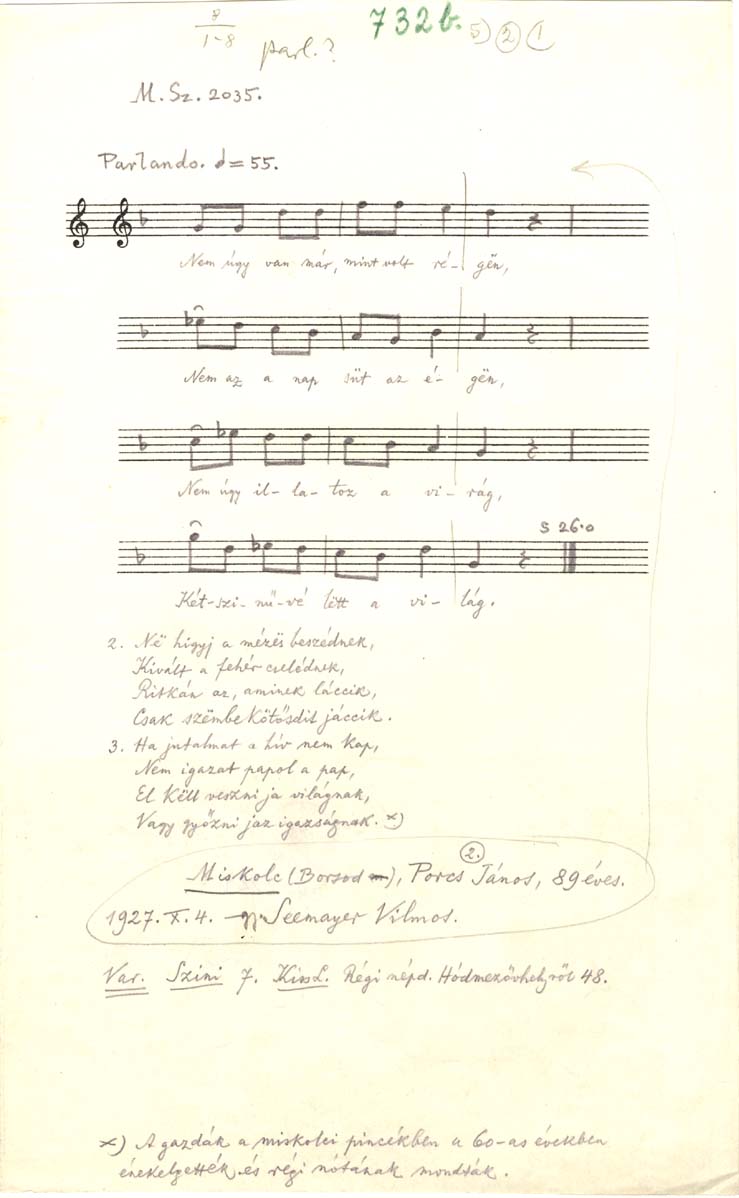 8
1-8
parl.?
732b. 5) 2 1
M. Sz. 2035.
Parlando. ♩= 55.
Nem úgy van már, mint volt ré- gën,
Nem az a nap süt az é- gën,
Nem úgy il- la- toz a vi- rág,
S 26.0
Két-szi- nű-vé lëtt a vi- lág.
2. Në higyj a mézës beszédnek,
Kivált a fehér cselédnek,
Ritkán az, aminek láccik,
Csak szëmbekötősdit jáccik.
3. Ha jutalmat a hív nem kap,
Nem igazat papol a pap,
El këll veszni ja világnak,
Vagy győzni jaz igazságnak. x)
Miskolc (Borsod), Porcs János, 89 éves.
2.
1927. X. 4. Seemayer Vilmos.
Var. Szini 7. Kiss L. Régi népd. Hódmezővhelyről 48.
x) A gazdák a miskolci pincékben a 60-as években
énekelgették és régi nótának mondták.